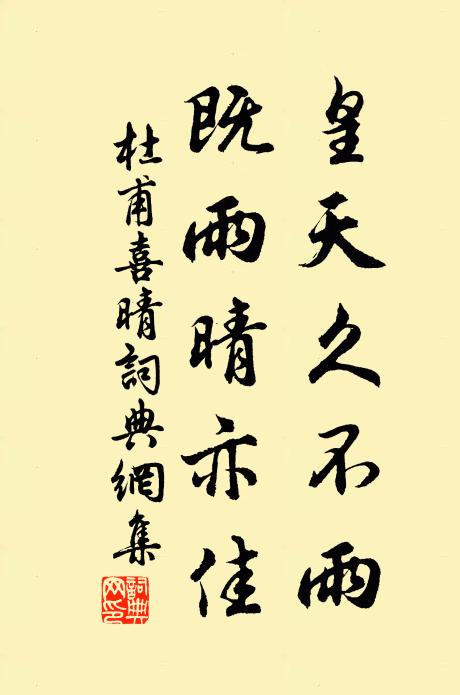 皇天久不雨
既雨晴亦佳
杜甫喜晴詞典網集
詞典網印